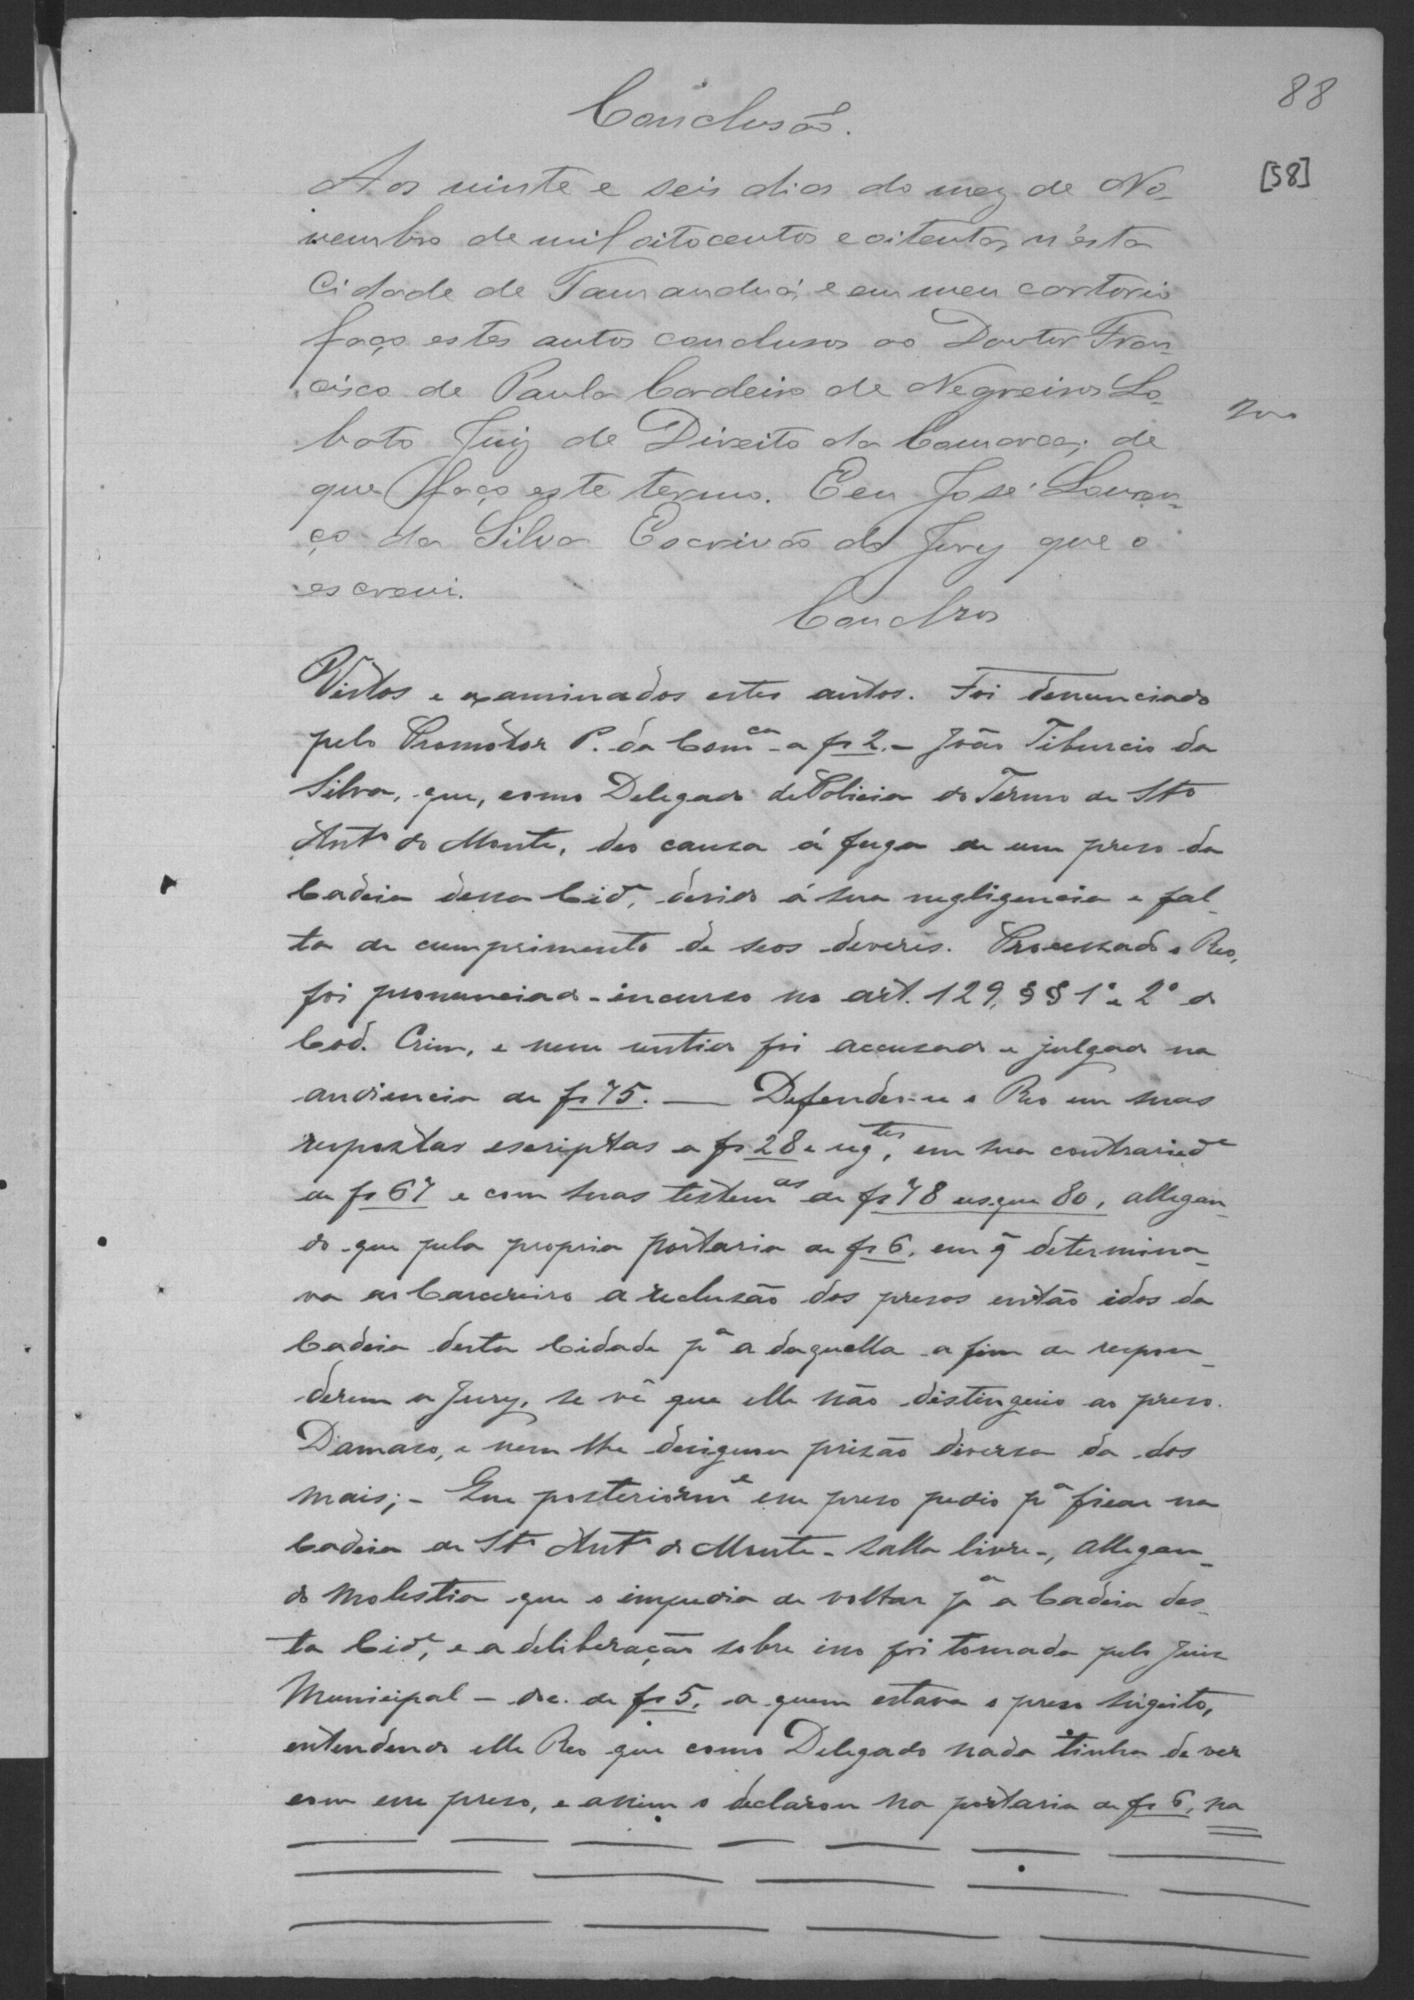 88
Conclusão.
[58]
Aos vinte e seis dias do mez de No-
vembro de mil oitocentos e oitenta, n'esta
Cidade de Tamanduá, e em meu cartorio
faço estes autos conclusos ao Doutor Fran-
cisco de Paula Cordeiro de Negreiros Lo-
bato Juiz de Direito da Comarca; de
que faço este termo. Eeu José Louren-
ço da Silva Escrivão do Jury que o
escrevi.
Conclsos
Vistos e examinados estes autos. Foi denunciado
pelo Promotor P. da Comca a fs 2. - João Tiburcio da
Silva, que, como Delegado de Policia do Termo de Sto
Anto do Monte, deo causa á fuga de um preso da
Cadeia dessa Cide, devido á sua negligencia e fal-
ta de cumprimento de seos deveres. Processado o Reo,
foi pronunciado - incurso no art. 129, §§ 1º e 2º do
Cod. Crim, e nem foi accusado e julgado na
audiencia de fs 75. — Defendeo-se o Reo em suas
respostas escriptas a fs 28 e segtes, em sua contrariede
de fs 67 e com suas testemas de fs 78 usque 80, allegan-
do que pela propria portaria de fs 6, em q̃ determina-
va ao Carcereiro a reclusão dos presos então idos da
Cadeia desta Cidade pa a daquella a fim de respon-
derem a Jury, se vê que elle não distinguio ao preso
Damaso, e nem lhe designou prizão diversa da dos
mais; - Que posteriorme esse preso pedio pa ficar na
Cadeia de Sto Anto do Monte - salla livre -, allegan-
do molestia que o impedia de voltar pa a Cadeia des-
ta Cide, e a deliberação sobre isso foi tomada pelo Juiz
Municipal - doc. de fs 5, a quem estava o preso sugeito,
entendendo elle Reo que como Delegado nada tinha de ver
com esse preso, e assim o declarou na portaria de fs 6, na